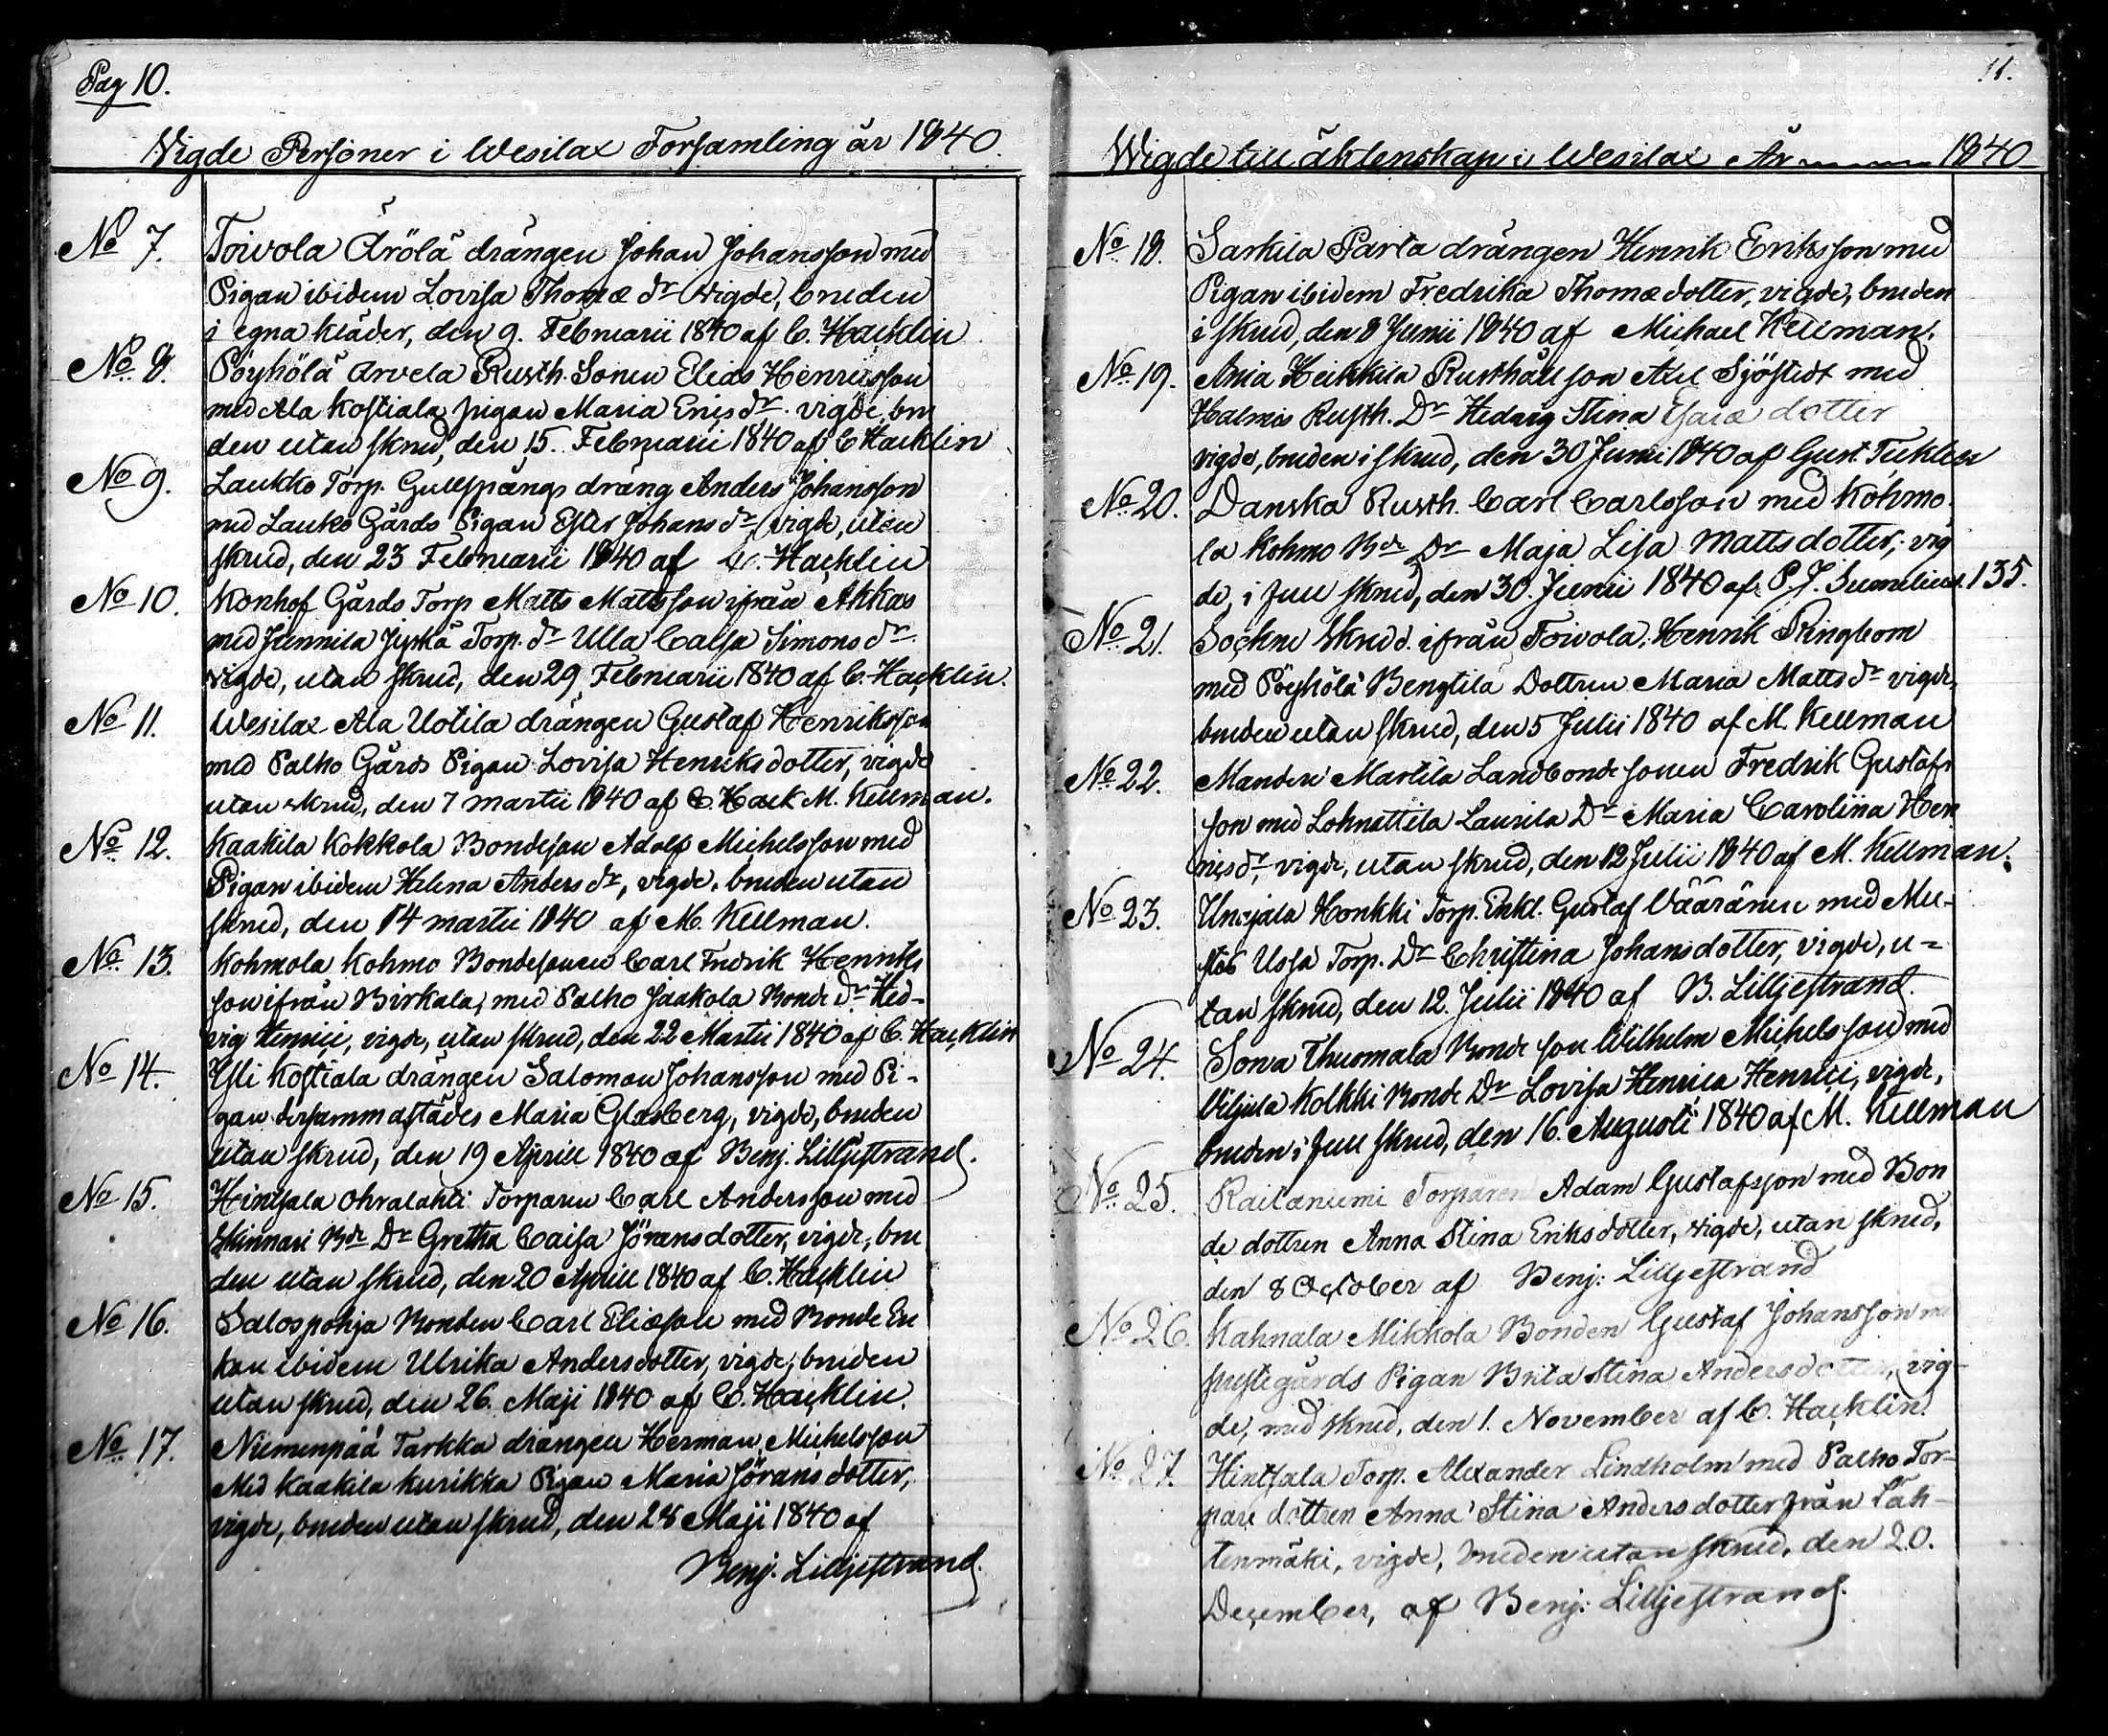 Pag 10.
Vigde Personer i Wesilax Forsamling år 1840.
No 7. Toivola Ärölä drängen Johan Johansson med
Pigan ibidem Lovisa Thomæ dr vigde, bruden
i egna kläder, den 9. Februarii 1840 af C. Hacklin
No 8. Pöyhölä Arvela Rusth. Sonen Elias Henricsson
med Ala Kostiala pigan Maria Erics dr. vigde, bru
den utan skrud, den 15. Februarii 1840 af C Hacklin
No 9. Laukko Torp. Gullspångs dräng Anders Johansson
med Lauko Gårds Pigan Ester Johans dr vigde, utan
skrud, den 23 Februarii 1840 af C. Hacklin
No 10. Konhof Gårds Torp Matts Mattsson ifrån Ahkas
med Junnila Jyskä Torp. dr Ulla Caisa Simons dr.
vigde, utan skrud, den 29 Februarii 1840 af C. Hacklin.
No 11. Wesilax Ala Uotila drängen Gustaf Henriksson
med Palho Gårds Pigan Lovisa Henriksdotter, vigde
utan skrud, den 7 martii 1840 af C. Hack M. Kellman.
No 12. Kaakila Kokkola Bondeson Adolf Michelsson med
Pigan ibidem Helena Anders dr, vigde, bruden utan
skrud, den 14 martii 1840 af M. Kellman.
No 13. Kohmola Kohmo Bondesonen Carl Fredrik Henriks
son ifrån Birkala, med Palho Jaakola Bonde Dr Hed-
vig Henrici, vigde, utan skrud, den 22 Martii 1840 af C. Hacklin
No 14. Yli Kostiala drängen Salomon Johansson med Pi-
gan dersammastädes Maria Glasberg, vigde, bruden
utan skrud, den 19 Aprill 1840 af Benj. Lilljestrand.
No 15. Hinsala Ohralahti Torparen Carl Andersson med
Skinnari Bde Dr Gretha Caisa Jöransdotter, vigde, bru
den utan skrud, den 20 Aprill 1840 af C. Hacklin
No 16. Salospohja Bonden Carl Eliæson med Bonde En
kan ibidem Ulrika Andersdotter, vigde, bruden
utan skrud, den 26. Maji 1840 af C. Hacklin.
No 17. Niemenpää Tarkka drängen Herman Michelsson
Med Kaakila Kurikka Pigan Maria Jörans dotter,
vigde, bruden utan skrud, den 28 Maji 1840 af
Benj. Lilljestrand.
11.
Wigde till äktenskap i Wesilax År 1840
No 18. Sarkila Parta drängen Henrik Eriksson med
Pigan ibidem Fredrika Thomædotter, vigde, bruden
i skrud, den 8 Junii 1840 af Michael Kellman.
No 19. Ania Heikkila Rusthåll son Axel Sjöstedt med
Halmis Rusth. Dr Hedvig Stina Esaiæ dotter
vigde, bruden i skrud, den 30 Junii 1840 af Gust. Ticklen
No 20. Danska Rusth. Carl Carlsson med Kohmo
la Kohmo Bde Dr Maja Lisa Mattsdotter, vig
de, i full skrud, den 30. Junii 1840 af P. J. Sumelius. 135.
No 21. Sockne Skredd. ifrån Toivola, Henrik Ringbom
med Pöyhölä Bengtilä Dottren Maria Matts dr vigde,
bruden utan skrud, den 5 Julii 1840 af M. Kellman
No 22. Mandere Martila Landbonde sonen Fredrik Gustafs
son med Lohnattila Laurila Dr Maria Carolina Hen
rics dr, vigde, utan skrud, den 12 Julii 1840 af M. Kellman.
No 23. Unajala Honkki Torp. Enkl. Gustaf Vääränen med
Torp. Dr Christina Johansdotter, vigde, u=
tan skrud, den 12. Julii 1840 af B. Lilljestrand.
No 24. Sorva Thuomala Bonde son Wilhelm Michelsson med
Viljula Kolkki Bonde Dr Lovisa Henrica Henrici, vigde,
bruden i full skrud, den 16. Augusti 1840 af M. Kellman
No 25. Raitaniemi Torparen Adam Gustafsson med Bon
de dottren Anna Stina Eriksdotter, vigde, utan skrud,
den 8 October af Benj: Lilljestrand
No 26. Kahnala Mikkola Bonden Gustaf Johansson med
prestegårds Pigan Brita Stina Andersdotter, vig-
de, med skrud, den 1. November af C. Hacklin.
No 27. Hinsala Torp. Alexander Lindholm med Palho Tor-
pare dottren Anna Stina Andersdotter från Lah-
tenmäki, vigde, bruden utan skrud, den 20.
December, af Benj: Lilljestrand.